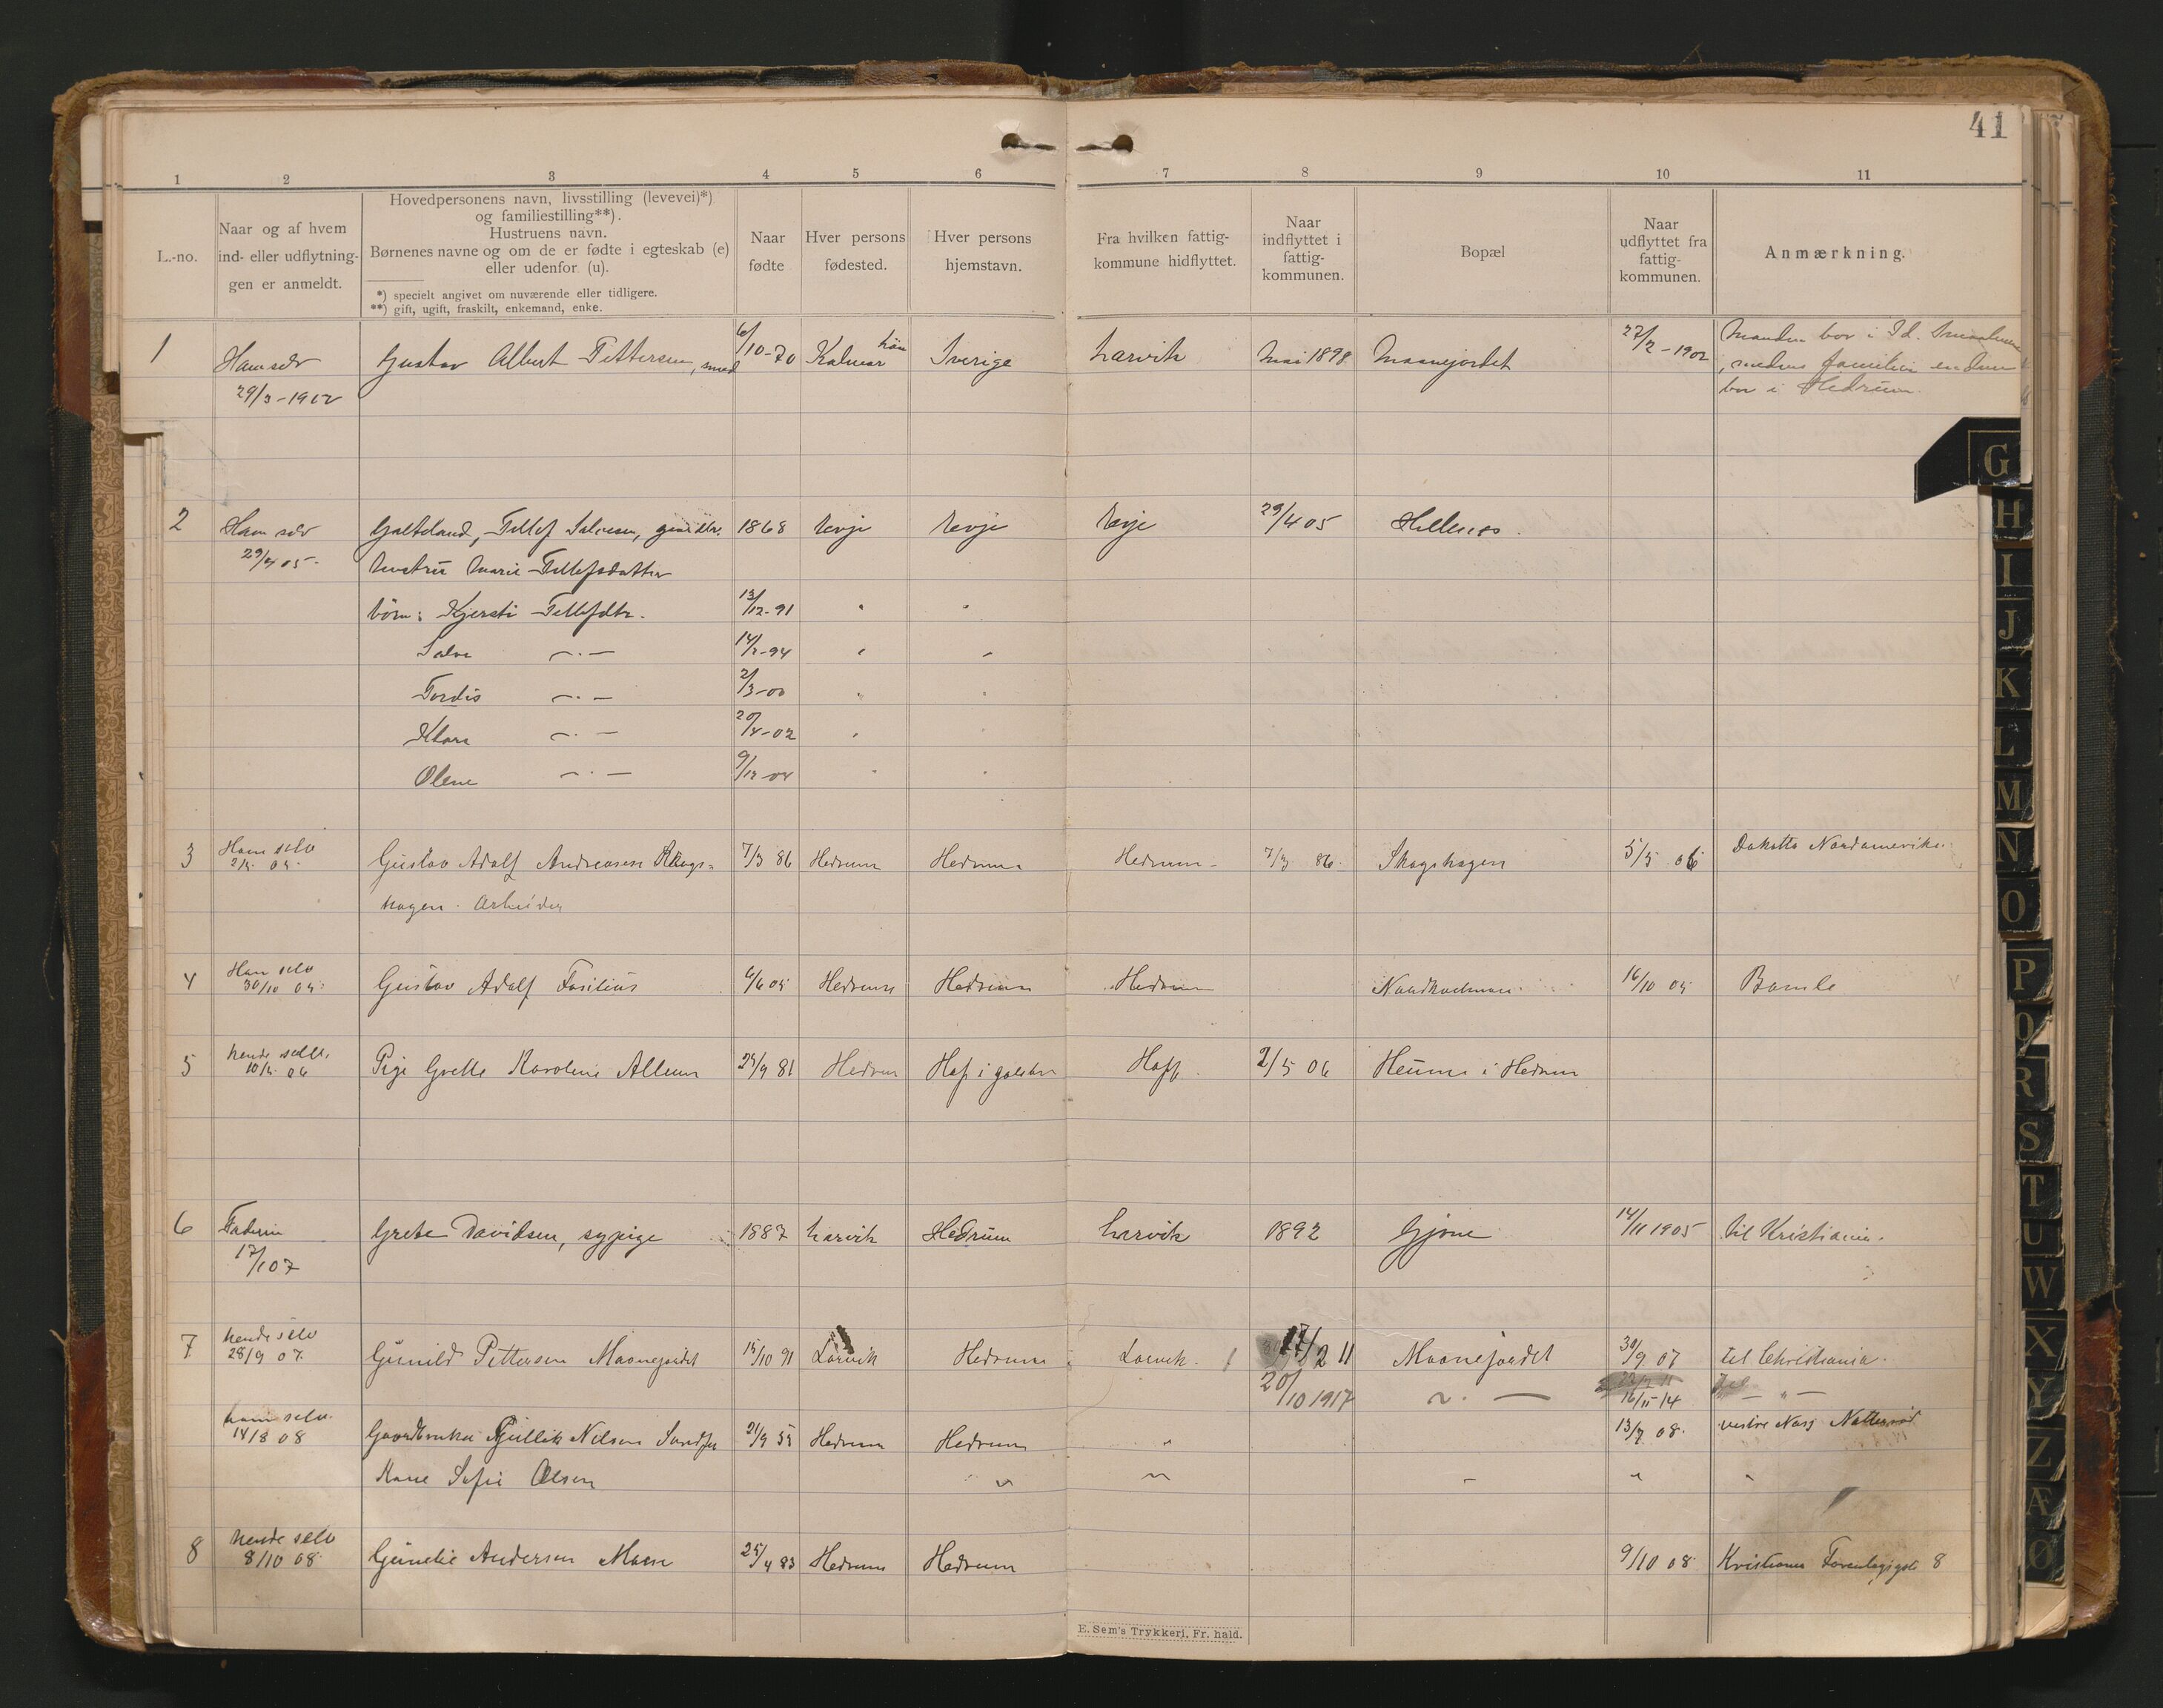 41
1 2 3 4 5 6 7 8 9 10 11
L.-no.
Naar og af hvem
ind- eller udflytnin-
gen er anmeldt.
Hovedpersonens navn, livsstilling (levevei)*)
og familiestilling**).
Hustruens navn.
Børnenes navne og om de er fødte i egteskab (e)
eller udenfor (u).
*) specielt angivet om nuværende eller tidligere.
**) gift, ugift, fraskilt, enkemand, enke.
Naar
fødte
Hver persons
fødested.
Hver persons
hjemstavn.
Fra hvilken fattig-
kommune hidflyttet.
Naar
indflyttet i
fattig-
kommunen.
Bopæl
Naar
udflyttet fra
fattig-
kommunen.
Anmærkning.
1 Ham selv Gustav Albert Pettersen, smed 6/10-70 Kalmar län Sverige Larvik Mai 1898 Maanejordet 27/2-1902 Manden bor i Id. Smaalenene
29/3-1902 , medens familien endnu
bor i Hedrum.
2 Ham selv Galteland, Tellef Salvesen, 1868 Evje Evje Evje 29/4 05
29/4 05. Hustru Marie Tellefsdatter
börn: Kjersti Tellefsdtr. 13/12-91 " "
Salve —"— 14/2-94 " "
Tordis —"— 2/3-00 " "
Klara —"— 20/4-02 " "
Olene —"— 9/12-04 " "
3 Ham selv Gustav Adolf Andreasen Skaugs- 7/3 86 Hedrum Hedrum Hedrum 7/3 86. Skogshagen 5/5 06 Dakotta Nordamerika.
hagen. Arbeider
4 Ham selv Gustav Adolf 6/6 05 Hedrum Hedrum Hedrum 16/10 05 Bamle
30/10 05.
5 hende selv. Pige Grethe Karoline Allum 25/9 81 Hedrum Hof i Hoff. 2/5 06 Heum i Hedrum
6 Faderen Grete Davidsen, sypige 1887 Larvik Hedrum Larvik 1892 Gjone 14/11 1905 til Kristiania.
17/1 07
7 hende selv Gunild Pettersen Maanejordet 15/10 91 Larvik Hedrum Larvik. 17/2 11 Maanejordet 30/9 07 til Christiania.
28/9 07. 20/10 1917 —"— 16/5 14 —"—
ham selv. Gaardbruker Gullik Nilsen 21/9 55 Hedrum Hedrum " 13/7 08. vestre Nøsj
14/8 08 Kone Sofie Olsen " " " " "
8 hende selv Andersen Moen 25/4 83 Hedrum Hedrum 9/10 08 Kristiania 8
8/10 08
E. Sem's Trykkeri, Fr. hald.
G
H
I
J
K
L
M
N
O
P
Q
R
S
T
U
W
X
Y
Z
Æ
Ø